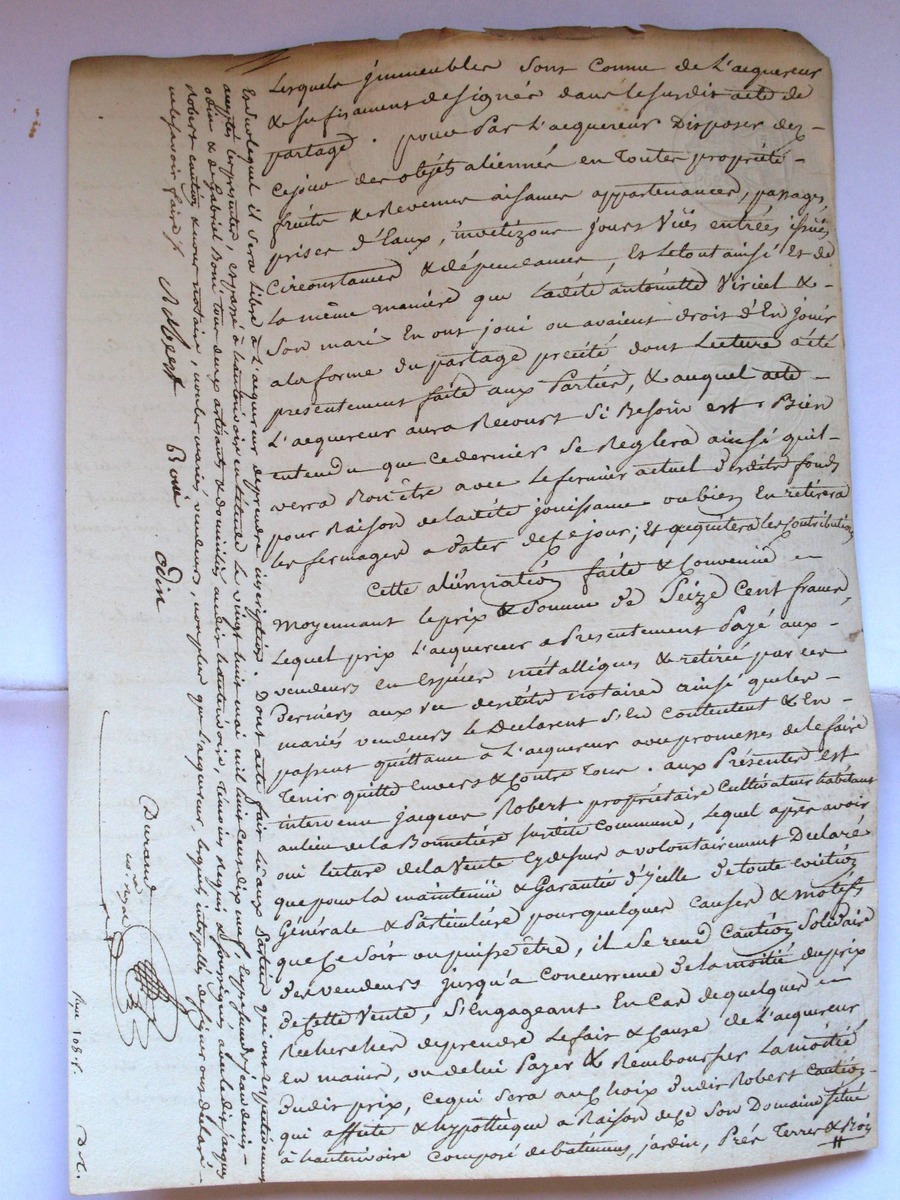 Lesquels jmmeubles sont connu de L'acquereur
& sufisament designés dans le susdit acte de
partage. pour par L'acquereur Disposer dez-
cejour des objets aliennés en Toutes propriété-
fruits & Revenus aisances appartenances, passages,
prises d'Eaux, jours Vües entrées issües
Circonstances & dépendances, Et le tout ainsi Et de
La même maniere que Ladite antoinette Viricel &-
Son mari En ont joui ou avaient droit d'En jouir
a la forme du partage precité dont Lecture a été
presentement faite aux Parties, & auquel acte-
L'acquereur aura Recours Si Besoin est. Bien
entendu que ce dernier Se Reglera ainsi quil-
verra Bon être avec Le fermier actuel desdits fonds
pour Raison de ladite jouissance ou bien En retirera
les fermages a dater de ce jour; Et acquitera les Contributions
Cette alienation faite & Convenue -
Moyennant le prix & Somme de Seize Cent francs,
Lequel prix L'acquereur a Presentement Payé aux-
vendeurs en Espèces métalliques & retirée par ces
Derniers aux vu desdits notaire ainsi que les-
mariés vendeurs le Declarent S'en Contentent & En-
passent quittance à L'acquereur avec promesses de le faire
Tenir quitte Envers & Contre Tous. aux Présentes est
intervenu jacques Robert propriétaire Cultivateur habitant
au lieu de la Bonnetière susdite Commune, Lequel après avoir
oui lecture de la Vente Cy dessus a volontairement Declaré
que pour la maintenüe & Garantie d'jcelle De toute eviction
Générale & Particuliere pour quelques causes & motifs
que Ce Soit ou puisse être, il Se rend Caution Solidaire
des vendeurs jusqu'à Concurrence De la moitié du prix
De Cette Vente, S'Engageant En Cas de quelque -
Recherches de prendre Le fait & Cause De L'acquereur
En main, ou de lui Payer & Rembourser La moitié
Dudit prix, ce qui Sera au Choix dudit Robert Caution-
qui affecte & hypothèque a Raison de ce Son Domaine Situé
à hauterivoire Composé de batimens, jardin, Prés Terres & Bois
En du lequel il Sera Libre à L'acquereur de prendre inscription. Dont acte fait Lu aux Parties qui ont respectivement
accepté les presentes, et passé à hauterivoire en l'étude Le vingt huit mai mil huit Cent dix neuf, En presence de jean denis-
odin & de Gabriel Boni tous deux artisants & domiciliés audit hauterivoire, Témoins Requis & soussignés, avec ledit jacques
Robert caution & nous notaire, non les mariés vendeurs, non plus que l'acquereur, lesquels interpellés de signer ont déclaré-
ne le savoir faire./.
Robert Boni odin
Durand
not. royal
fleye 108. r.
D. C.